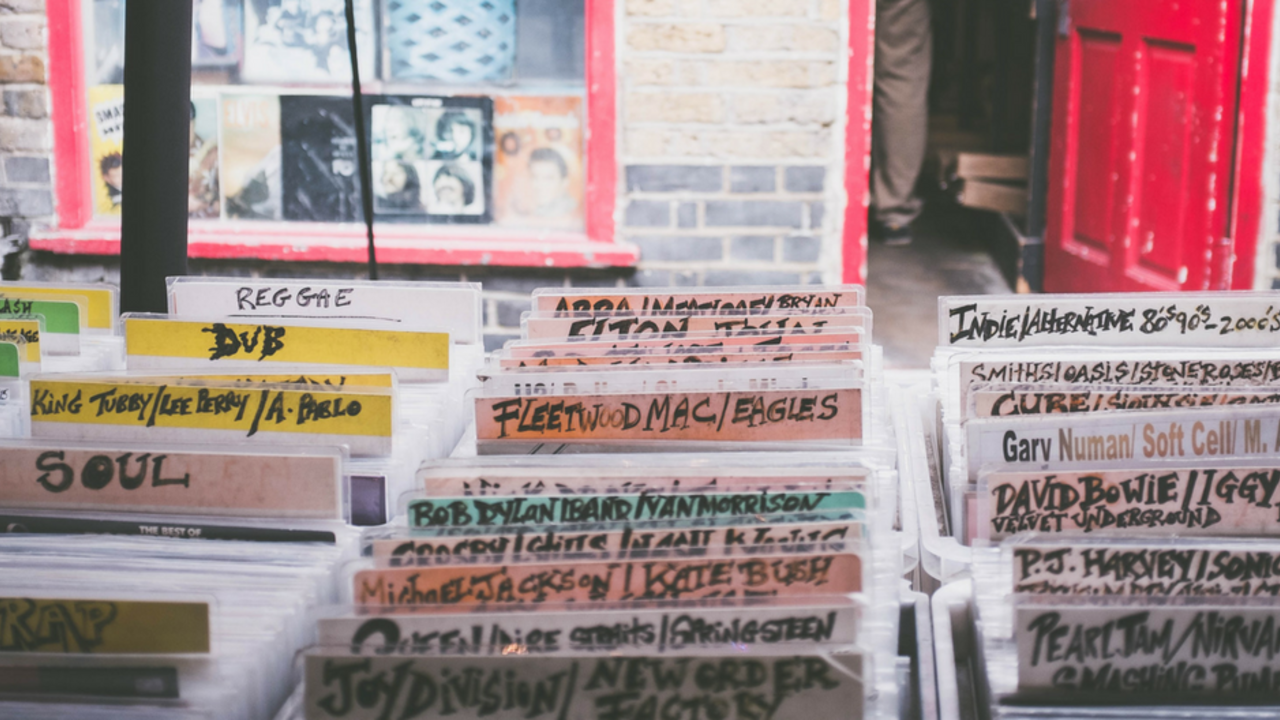 REGGAE
DUB
KING TUBBY/LEE PERRY/A. PABLO
SOUL
THE BEST OF
RAP
ABBA/ BRYAN
ELTON JOHN
FLEETWOOD MAC/EAGLES
BOB DYLAN/BAND/VAN MORRISON
CROSBY/STILLS/NASH & YOUNG
MICHAEL JACKSON/KATE BUSH
QUEEN/DIRE STRAITS/SPRINGSTEEN
JOY DIVISION/ NEW ORDER
FACTORY
INDIE/ALTERNATIVE 80'S 90'S-2000'S
SMITHS/OASIS/STONE ROSES/
CURE/
Gary Numan/ Soft Cell/ M.
DAVID BOWIE/IGGY
VELVET UNDERGROUND
P.J. HARVEY/SONIC
PEARL JAM/NIRVA
SMASHING PUM